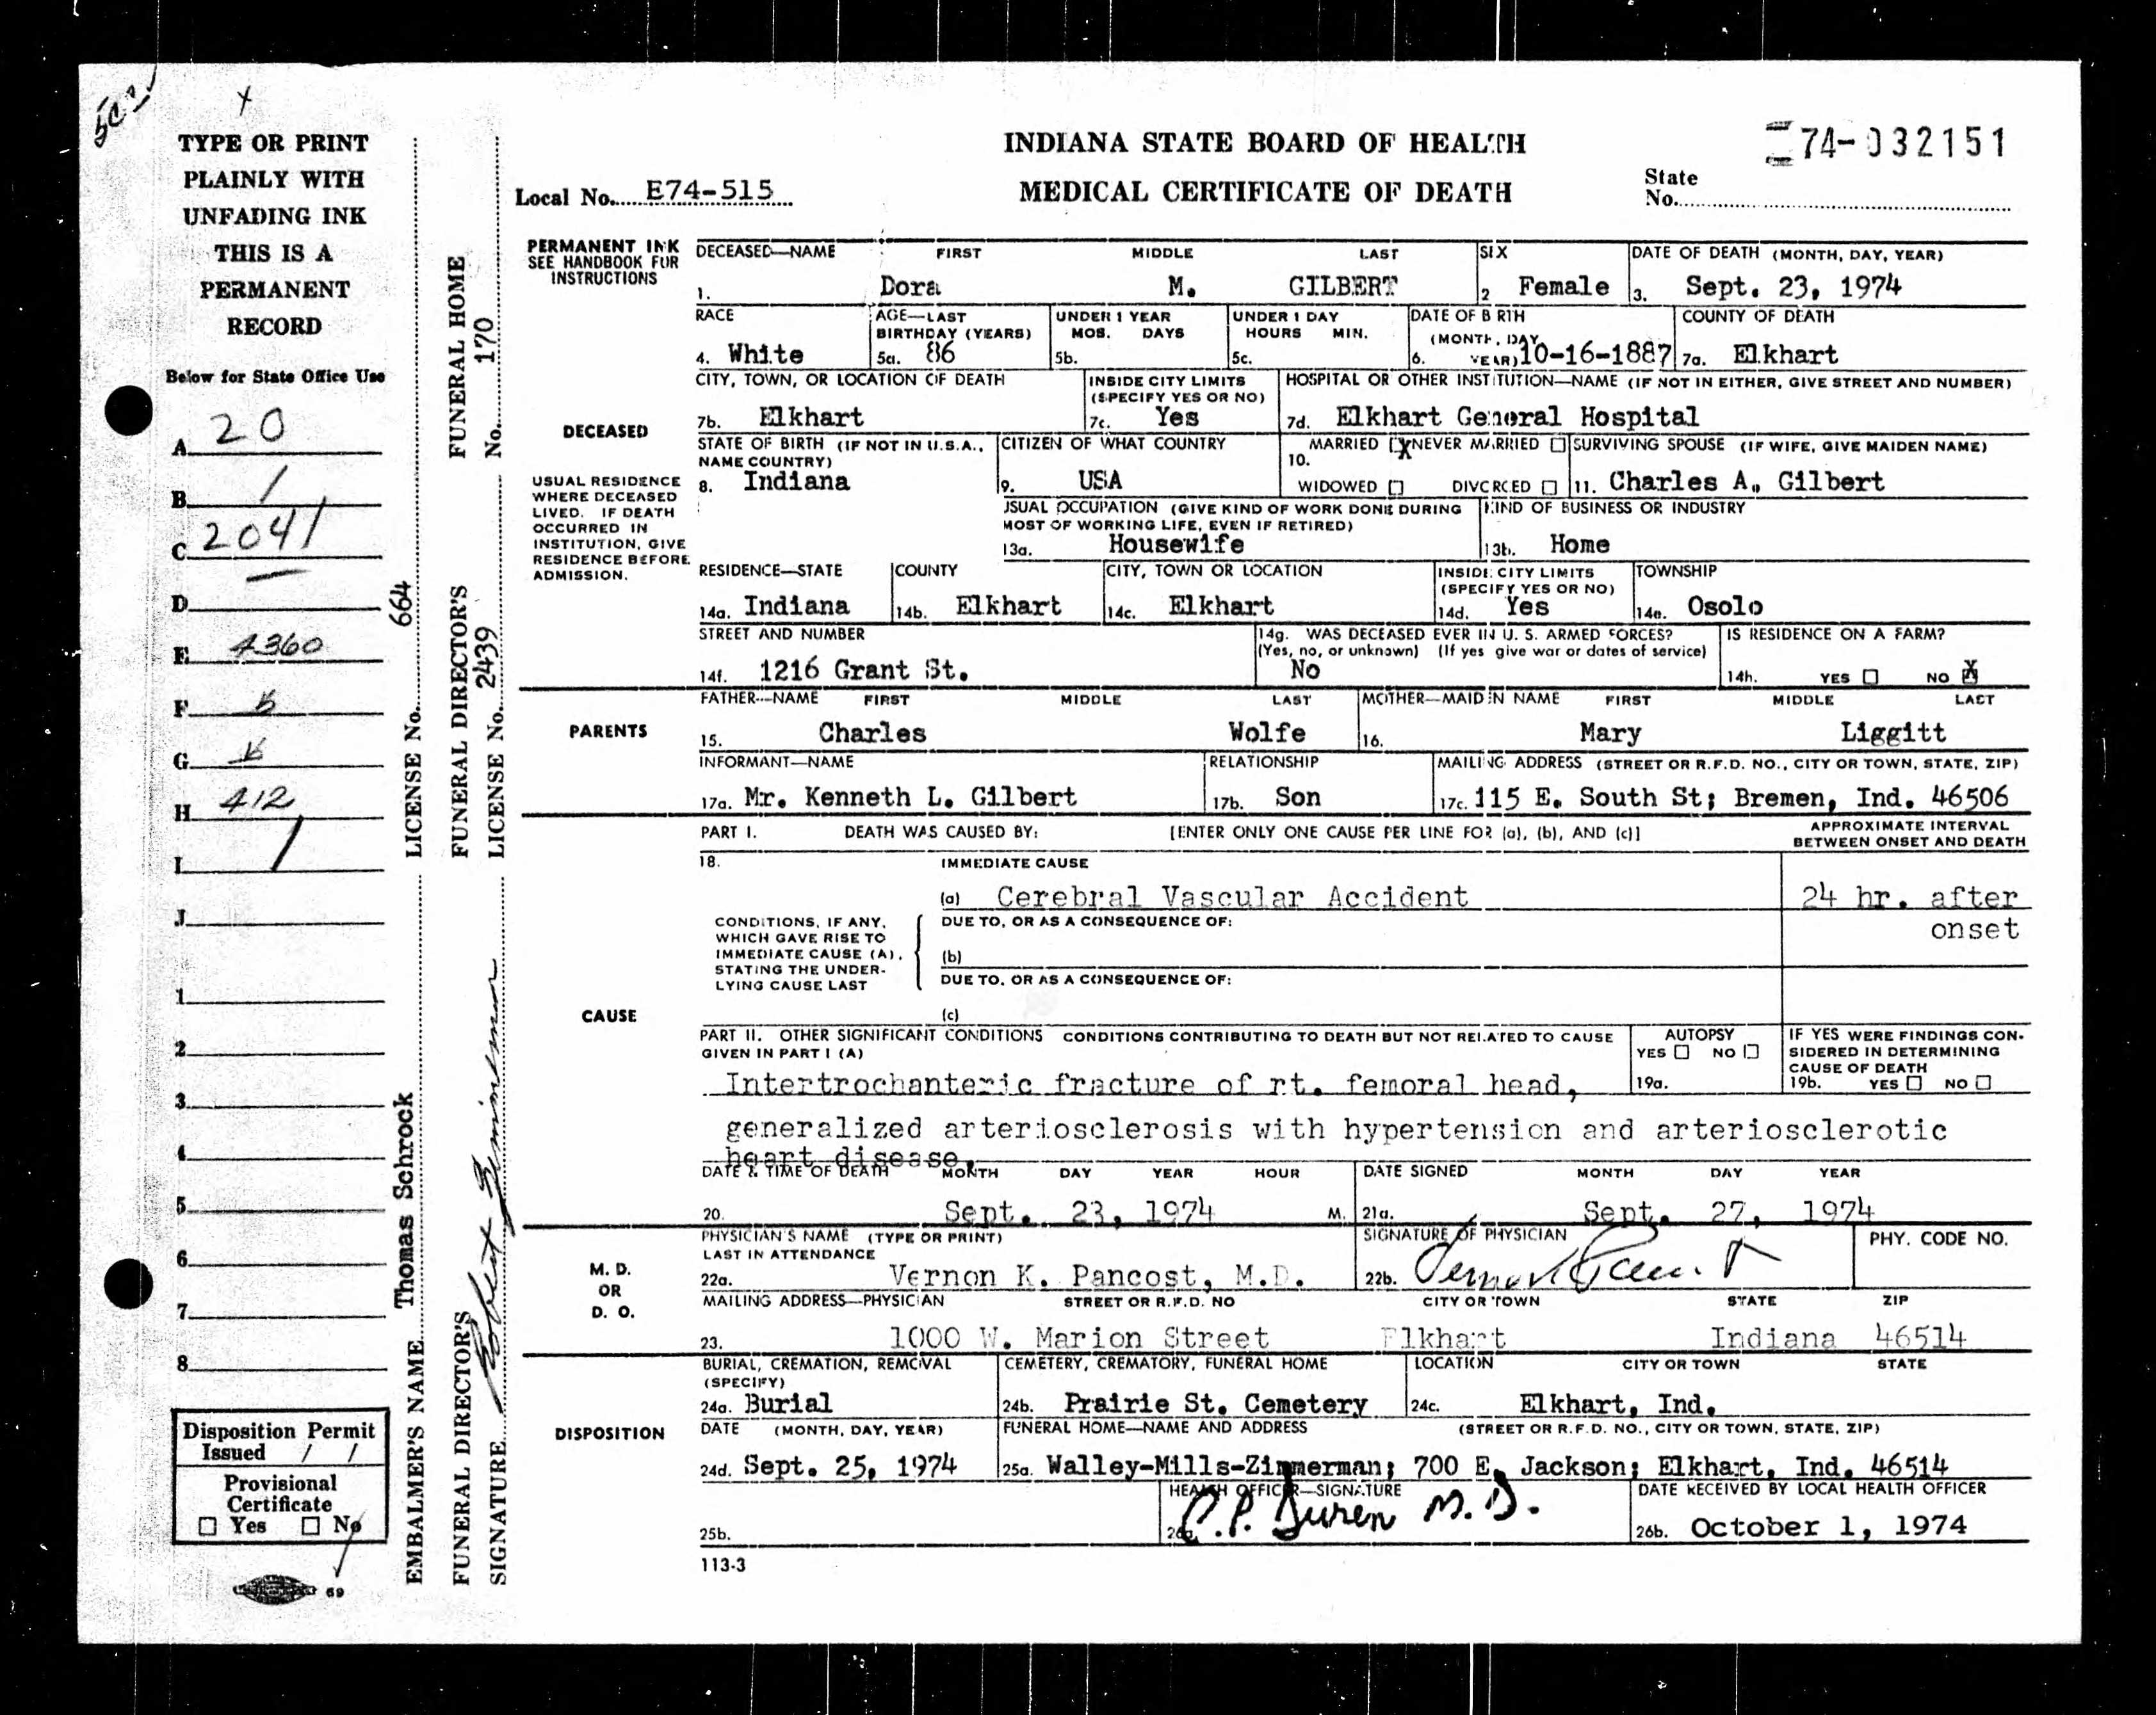 TYPE OR PRINT
PLAINLY WITH
UNFADING INK
THIS IS A
PERMANENT
RECORD
Below for State Office Use
A 20
B 1
C 2041
D —
E 4360
F
G
H 412
I 1
J
1
2
3
4
5
6
7
8
Disposition Permit
Issued / /
Provisional
Certificate
☐ Yes ☐ No
69
EMBALMER'S NAME Thomas Schrock LICENSE No. 664
FUNERAL DIRECTOR'S SIGNATURE Robert Zimmerman
FUNERAL DIRECTOR'S LICENSE No. 2439
FUNERAL HOME No. 170
INDIANA STATE BOARD OF HEALTH
MEDICAL CERTIFICATE OF DEATH
Local No. E74-515
74-032151
State
No.
PERMANENT INK
SEE HANDBOOK FOR
INSTRUCTIONS
DECEASED—NAME FIRST MIDDLE LAST SEX DATE OF DEATH (MONTH, DAY, YEAR)
1. Dora M. GILBERT 2 Female 3. Sept. 23, 1974
RACE AGE—LAST BIRTHDAY (YEARS) UNDER 1 YEAR MOS. DAYS UNDER 1 DAY HOURS MIN. DATE OF BIRTH (MONTH, DAY, YEAR) COUNTY OF DEATH
4. White 5a. 86 5b. 5c. 6. 10-16-1887 7a. Elkhart
CITY, TOWN, OR LOCATION OF DEATH INSIDE CITY LIMITS (SPECIFY YES OR NO) HOSPITAL OR OTHER INSTITUTION—NAME (IF NOT IN EITHER, GIVE STREET AND NUMBER)
DECEASED
7b. Elkhart 7c. Yes 7d. Elkhart General Hospital
USUAL RESIDENCE
WHERE DECEASED
LIVED. IF DEATH
OCCURRED IN
INSTITUTION, GIVE
RESIDENCE BEFORE
ADMISSION.
STATE OF BIRTH (IF NOT IN U.S.A., NAME COUNTRY) CITIZEN OF WHAT COUNTRY MARRIED ☒ NEVER MARRIED ☐ SURVIVING SPOUSE (IF WIFE, GIVE MAIDEN NAME)
8. Indiana 9. USA 10. WIDOWED ☐ DIVORCED ☐ 11. Charles A. Gilbert
USUAL OCCUPATION (GIVE KIND OF WORK DONE DURING MOST OF WORKING LIFE, EVEN IF RETIRED) KIND OF BUSINESS OR INDUSTRY
13a. Housewife 13b. Home
RESIDENCE—STATE COUNTY CITY, TOWN OR LOCATION INSIDE CITY LIMITS (SPECIFY YES OR NO) TOWNSHIP
14a. Indiana 14b. Elkhart 14c. Elkhart 14d. Yes 14e. Osolo
STREET AND NUMBER 14g. WAS DECEASED EVER IN U. S. ARMED FORCES? (Yes, no, or unknown) (If yes give war or dates of service) IS RESIDENCE ON A FARM?
14f. 1216 Grant St. No 14h. YES ☐ NO ☒
PARENTS
FATHER—NAME FIRST MIDDLE LAST MOTHER—MAIDEN NAME FIRST MIDDLE LAST
15. Charles Wolfe 16. Mary Liggitt
INFORMANT—NAME RELATIONSHIP MAILING ADDRESS (STREET OR R.F.D. NO., CITY OR TOWN, STATE, ZIP)
17a. Mr. Kenneth L. Gilbert 17b. Son 17c. 115 E. South St; Bremen, Ind. 46506
CAUSE
PART I. DEATH WAS CAUSED BY: [ENTER ONLY ONE CAUSE PER LINE FOR (a), (b), AND (c)] APPROXIMATE INTERVAL BETWEEN ONSET AND DEATH
18. IMMEDIATE CAUSE
(a) Cerebral Vascular Accident 24 hr. after
onset
CONDITIONS, IF ANY,
WHICH GAVE RISE TO
IMMEDIATE CAUSE (A),
STATING THE UNDER-
LYING CAUSE LAST
DUE TO, OR AS A CONSEQUENCE OF:
(b)
DUE TO, OR AS A CONSEQUENCE OF:
(c)
PART II. OTHER SIGNIFICANT CONDITIONS CONDITIONS CONTRIBUTING TO DEATH BUT NOT RELATED TO CAUSE GIVEN IN PART I (A)
AUTOPSY YES ☐ NO ☐ 19a.
IF YES WERE FINDINGS CON-
SIDERED IN DETERMINING
CAUSE OF DEATH
19b. YES ☐ NO ☐
Intertrochanteric fracture of rt. femoral head,
generalized arteriosclerosis with hypertension and arteriosclerotic
heart disease.
DATE & TIME OF DEATH MONTH DAY YEAR HOUR DATE SIGNED MONTH DAY YEAR
20. Sept. 23, 1974 M. 21a. Sept. 27, 1974
M. D.
OR
D. O.
PHYSICIAN'S NAME (TYPE OR PRINT) LAST IN ATTENDANCE SIGNATURE OF PHYSICIAN PHY. CODE NO.
22a. Vernon K. Pancost, M.D. 22b.
MAILING ADDRESS—PHYSICIAN STREET OR R.F.D. NO CITY OR TOWN STATE ZIP
23. 1000 W. Marion Street Elkhart Indiana 46514
DISPOSITION
BURIAL, CREMATION, REMOVAL (SPECIFY) CEMETERY, CREMATORY, FUNERAL HOME LOCATION CITY OR TOWN STATE
24a. Burial 24b. Prairie St. Cemetery 24c. Elkhart, Ind.
DATE (MONTH, DAY, YEAR) FUNERAL HOME—NAME AND ADDRESS (STREET OR R.F.D. NO., CITY OR TOWN, STATE, ZIP)
24d. Sept. 25, 1974 25a. Walley-Mills-Zimmerman; 700 E. Jackson; Elkhart, Ind. 46514
HEALTH OFFICER—SIGNATURE DATE RECEIVED BY LOCAL HEALTH OFFICER
25b. 26a. M.D. 26b. October 1, 1974
113-3